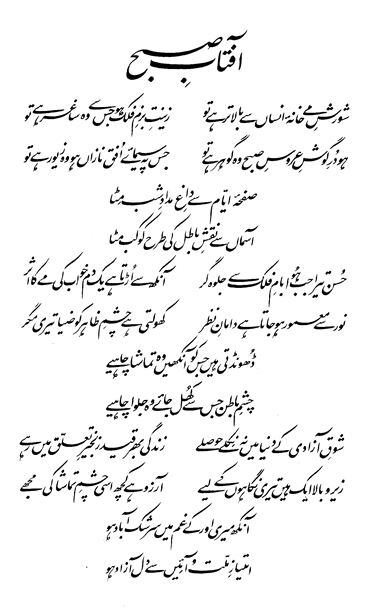 آفتابِ صبح
شورشِ میخانۂ انساں سے بالاتر ہے تو زینتِ بزمِ فلک ہو جس سے وہ ساغر ہے تو
ہو دُرِ گوشِ عروسِ صبح وہ گوہر ہے تو جس پہ سیمائے اُفق نازاں ہو وہ زیور ہے تو
صفحۂ ایّام سے داغِ مدادِ شب مٹا
آسماں سے نقشِ باطل کی طرح کوکب مٹا
حُسن تیرا جب ہُوا بامِ فلک سے جلوہ گر آنکھ سے اُڑتا ہے یک دم خواب کی مے کا اثر
نور سے معمور ہو جاتا ہے دامانِ نظر کھولتی ہے چشمِ ظاہر کو ضیا تیری مگر
ڈھونڈتی ہیں جس کو آنکھیں وہ تماشا چاہیے
چشمِ باطن جس سے کُھل جائے وہ جلوا چاہیے
شوقِ آزادی کے دنیا میں نہ نکلے حوصلے زندگی بھر قید زنجیرِ تعلّق میں رہے
زیر و بالا ایک ہیں تیری نگاہوں کے لیے آرزو ہے کچھ اسی چشمِ تماشا کی مجھے
آنکھ میری اور کے غم میں سرشک آباد ہو
امتیازِ ملّت و آئیں سے دل آزاد ہو